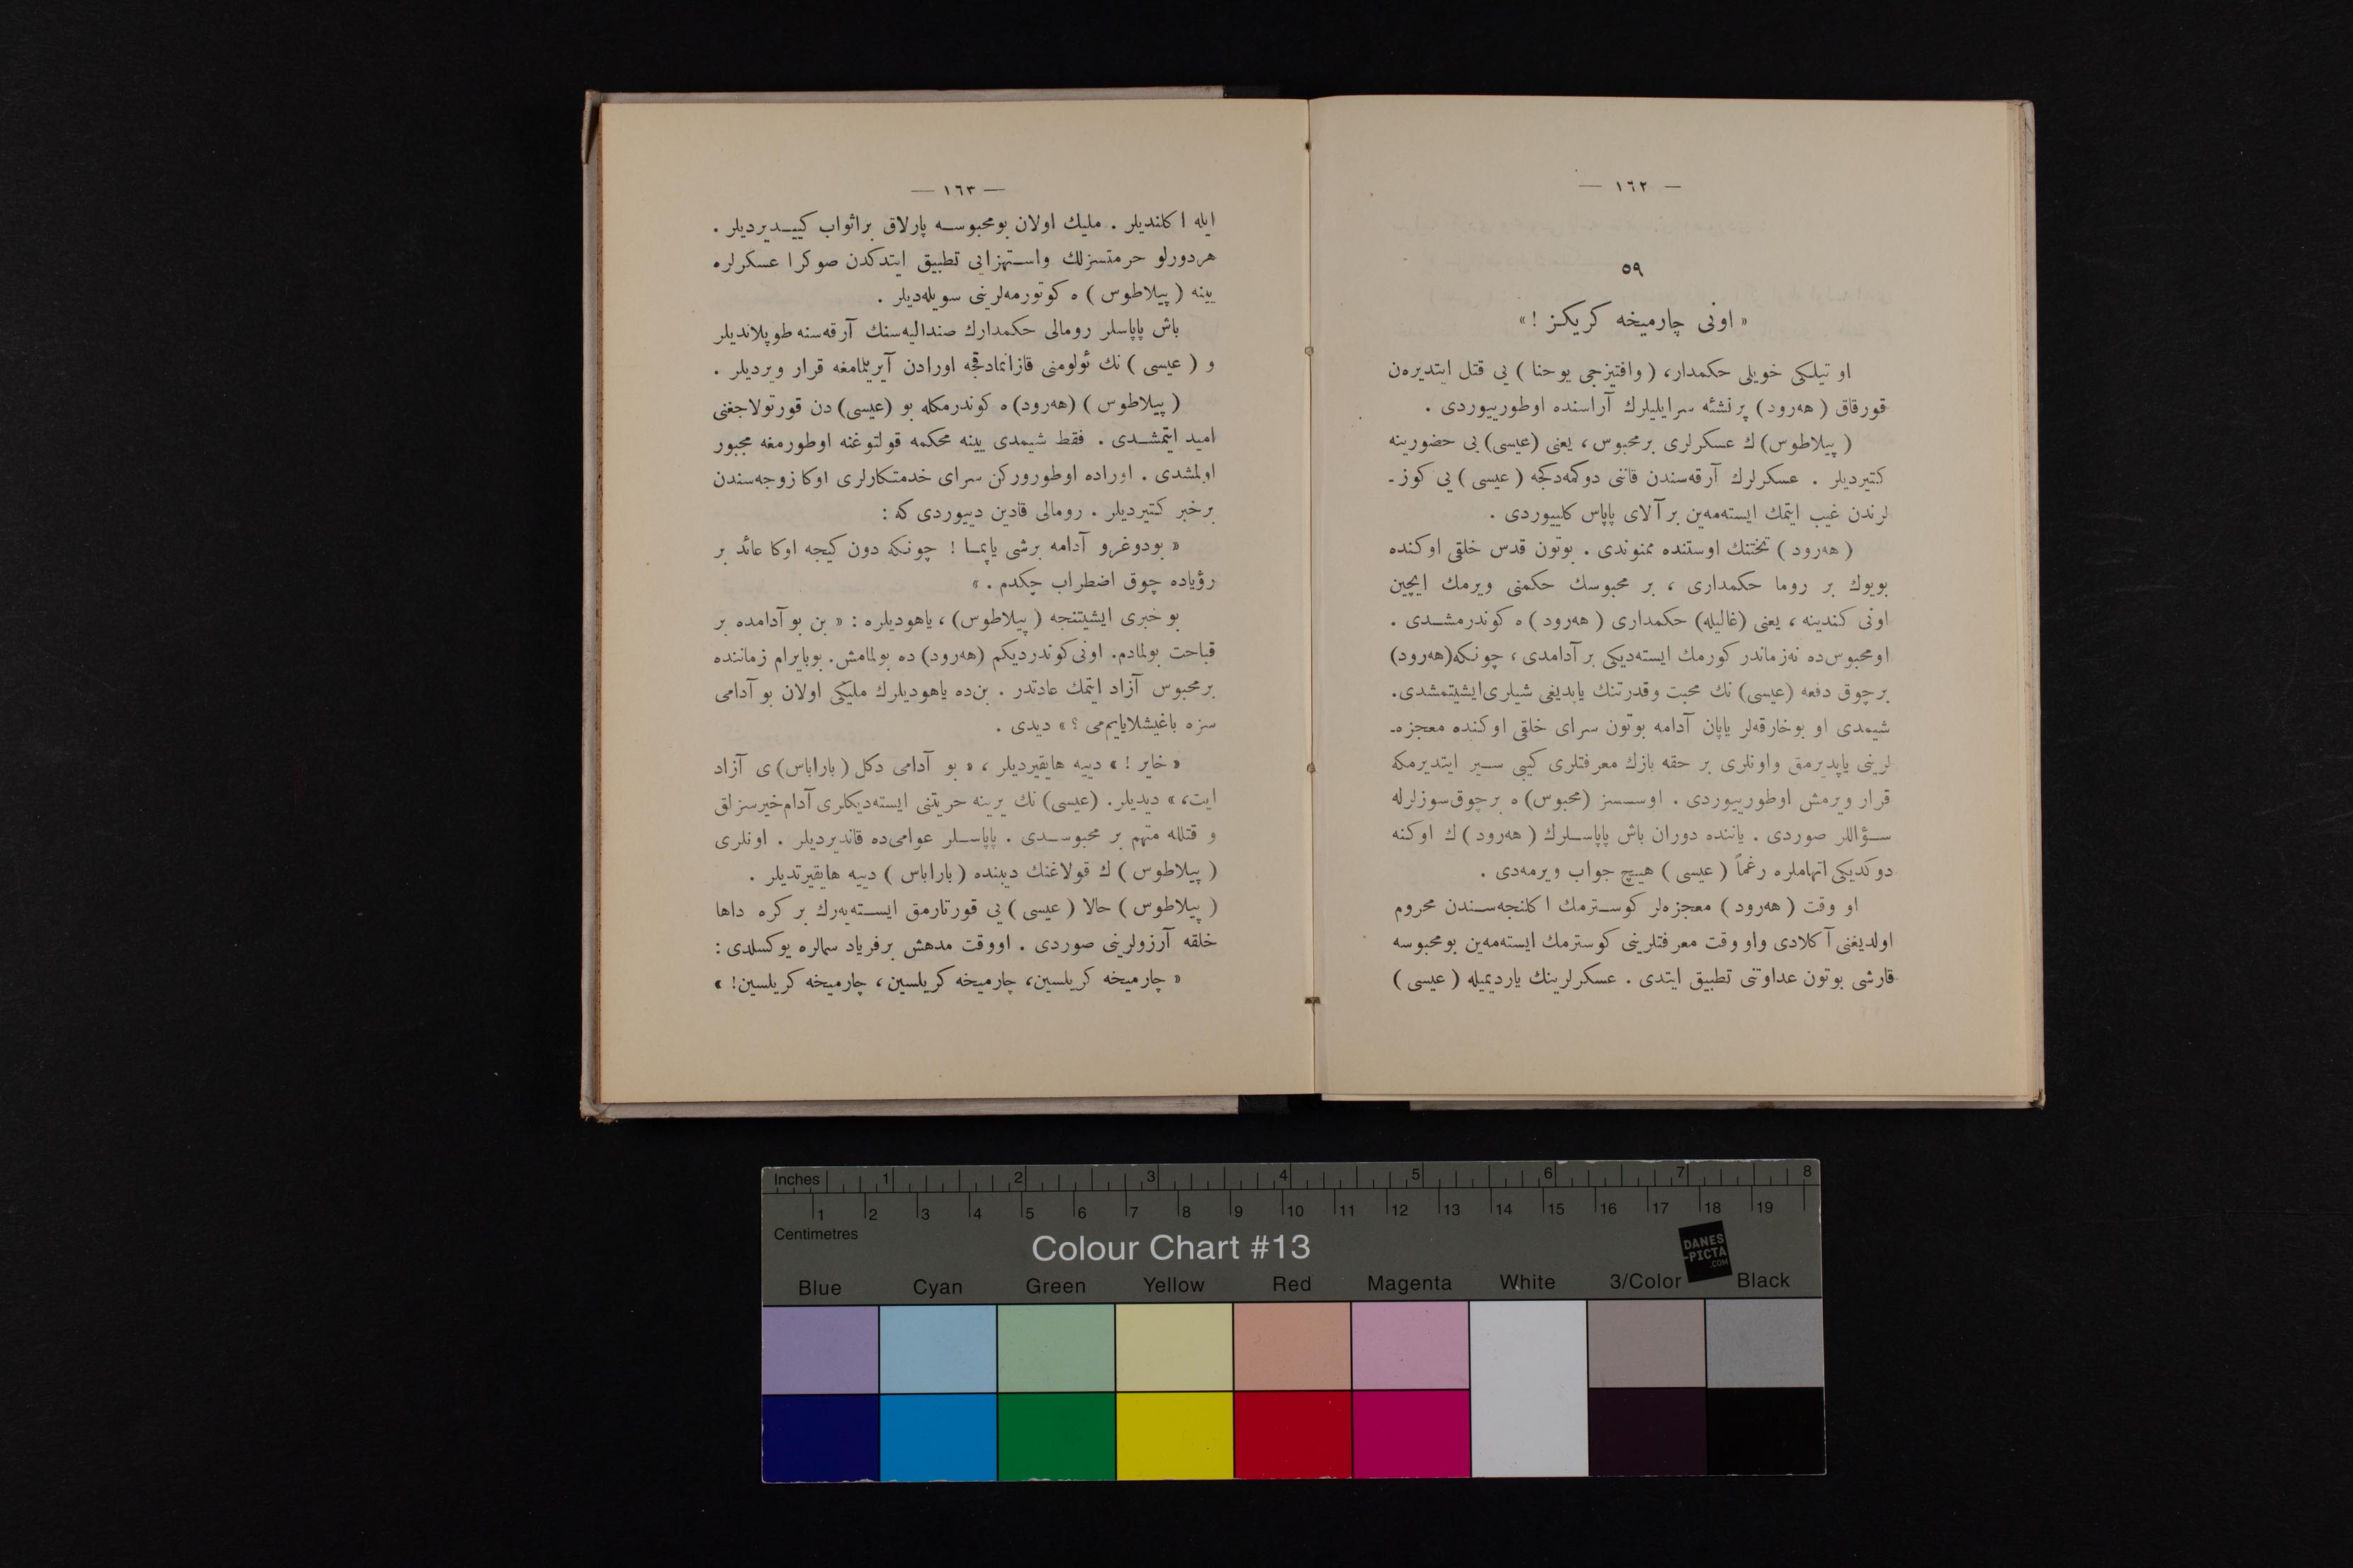 — ١٦٢ —
٥٩
« اونی چارمیخه کریکز ! »
او تیلکی خویلی حکمدار، ( وافتیزجی یوحنا ) یی قتل ایتدیره‌ن
قورقاق ( هه‌رود ) پر نشئه سرایلیلرك آراسنده اوطورییوردی .
( پیلاطوس) ك عسکرلری برمحبوس ، یعنی (عیسی) یی حضورینه
کتیردیلر . عسکرلرك آرقه‌سندن قاننی دوکمه‌دکجه ( عیسی ) یی کوز ـ
لرندن غیب ایتمك ایسته‌مه‌ین بر آلای پاپاس کلییوردی .
( هه‌رود ) تختنك اوستنده ممنوندی . بوتون قدس خلقی اوکنده
بویوك بر روما حکمداری ، بر محبوسك حکمنی ویرمك ایچین
اونی کندینه ، یعنی (غالیله) حکمداری ( هه‌رود ) ه کوندرمشـدی .
اومحبوس‌ده نه‌زماندر کورمك ایسته‌دیکی بر آدامدی ، چونکه(هه‌رود)
برچوق دفعه (عیسی) نك محبت وقدرتنك یاپدیغی شیلری‌ایشیتمشدی.
شیمدی او بوخارقه‌لر یاپان آدامه بوتون سرای خلقی اوکنده معجزه‌ـ
لرینی یاپدیرمق واونلری بر حقه بازك معرفتلری کیبی سـیر ایتدیرمکه
قرار ویرمش اوطورییوردی . اوسـسز (محبوس) ه برچوق‌سوزلرله
سـؤاللر صوردی . یاننده دوران باش پاپاسـلرك ( هه‌رود ) ك اوکنه
دوکدیکی اتهاملره رغماً ( عیسی ) هیچ جواب ویرمه‌دی .
او وقت ( هه‌رود ) معجزه‌لر کوسـترمك اکلنجه‌سـندن محروم
اولدیغنی آکلادی واو وقت معرفتلرینی کوسترمك ایسته‌مه‌ین بومحبوسه
قارشی بوتون عداوتنی تطبیق ایتدی . عسکرلرینك یاردیمیله ( عیسی )
— ١٦٣ —
ایله اکلندیلر . ملیك اولان بومحبوسـه پارلاق براثواب کییـدیردیلر .
هردورلو حرمتسزلك واسـتهزایی تطبیق ایتدکدن صوکرا عسکرلره
یینه ( پیلاطوس ) ه کوتورمه‌لرینی سویله‌دیلر .
باش پاپاسلر رومالی حکمدارك صندالیه‌سنك آرقه‌سنه طوپلاندیلر
و ( عیسی ) نك ئولومنی قازانمادقجه اورادن آیریلمامغه قرار ویردیلر .
( پیلاطوس ) (هه‌رود) ه کوندرمکله بو (عیسی) دن قورتولاجغنی
امید ایتمشـدی . فقط شیمدی یینه محکمه قولتوغنه اوطورمغه مجبور
اولمشدی . اوراده اوطورورکن سرای خدمتکارلری اوکا زوجه‌سندن
برخبر کتیردیلر . رومالی قادین دییوردی که :
« بودوغرو آدامه برشی یاپمـا ! چونکه دون کیجه اوکا عائد بر
رؤیاده چوق اضطراب چکدم . »
بو خبری ایشیتنجه ( پیلاطوس) ، یاهودیلره : « بن بو آدامده بر
قباحت بولمادم. اونی‌کوندردیکم (هه‌رود) ده بولمامش. بوبایرام زماننده
برمحبوس آزاد ایتمك عادتدر . بن‌ده یاهودیلرك ملیکی اولان بو آدامی
سزه باغیشلایایم‌می ؟ » دیدی .
« خایر ! » دییه هایقیردیلر ، « بو آدامی دکل (باراباس) ی آزاد
ایت، » دیدیلر. (عیسی) نك یرینه حریتنی ایسته‌دیکلری آدام‌خیرسزلق
و قتلله متهم بر محبوسـدی . پاپاسـلر عوامی‌ده قاندیردیلر . اونلری
( پیلاطوس ) ك قولاغنك دیبنده ( باراباس ) دییه هایقیرتدیلر .
( پیلاطوس ) حالا ( عیسی ) یی قورتارمق ایسـته‌یه‌رك بر کره داها
خلقه آرزولرینی صوردی . اووقت مدهش برفریاد سمالره یوکسلدی :
« چارمیخه کریلسین، چارمیخه کریلسین ، چارمیخه کریلسین! »
Inches 1 2 3 4 5 6 7 8
1 2 3 4 5 6 7 8 9 10 11 12 13 14 15 16 17 18 19
Centimetres
Colour Chart #13
DANES
-PICTA
.COM
Blue Cyan Green Yellow Red Magenta White 3/Color Black